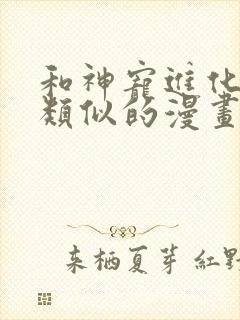 和神寵進化
類似的漫畫
来栖夏芽 紅野